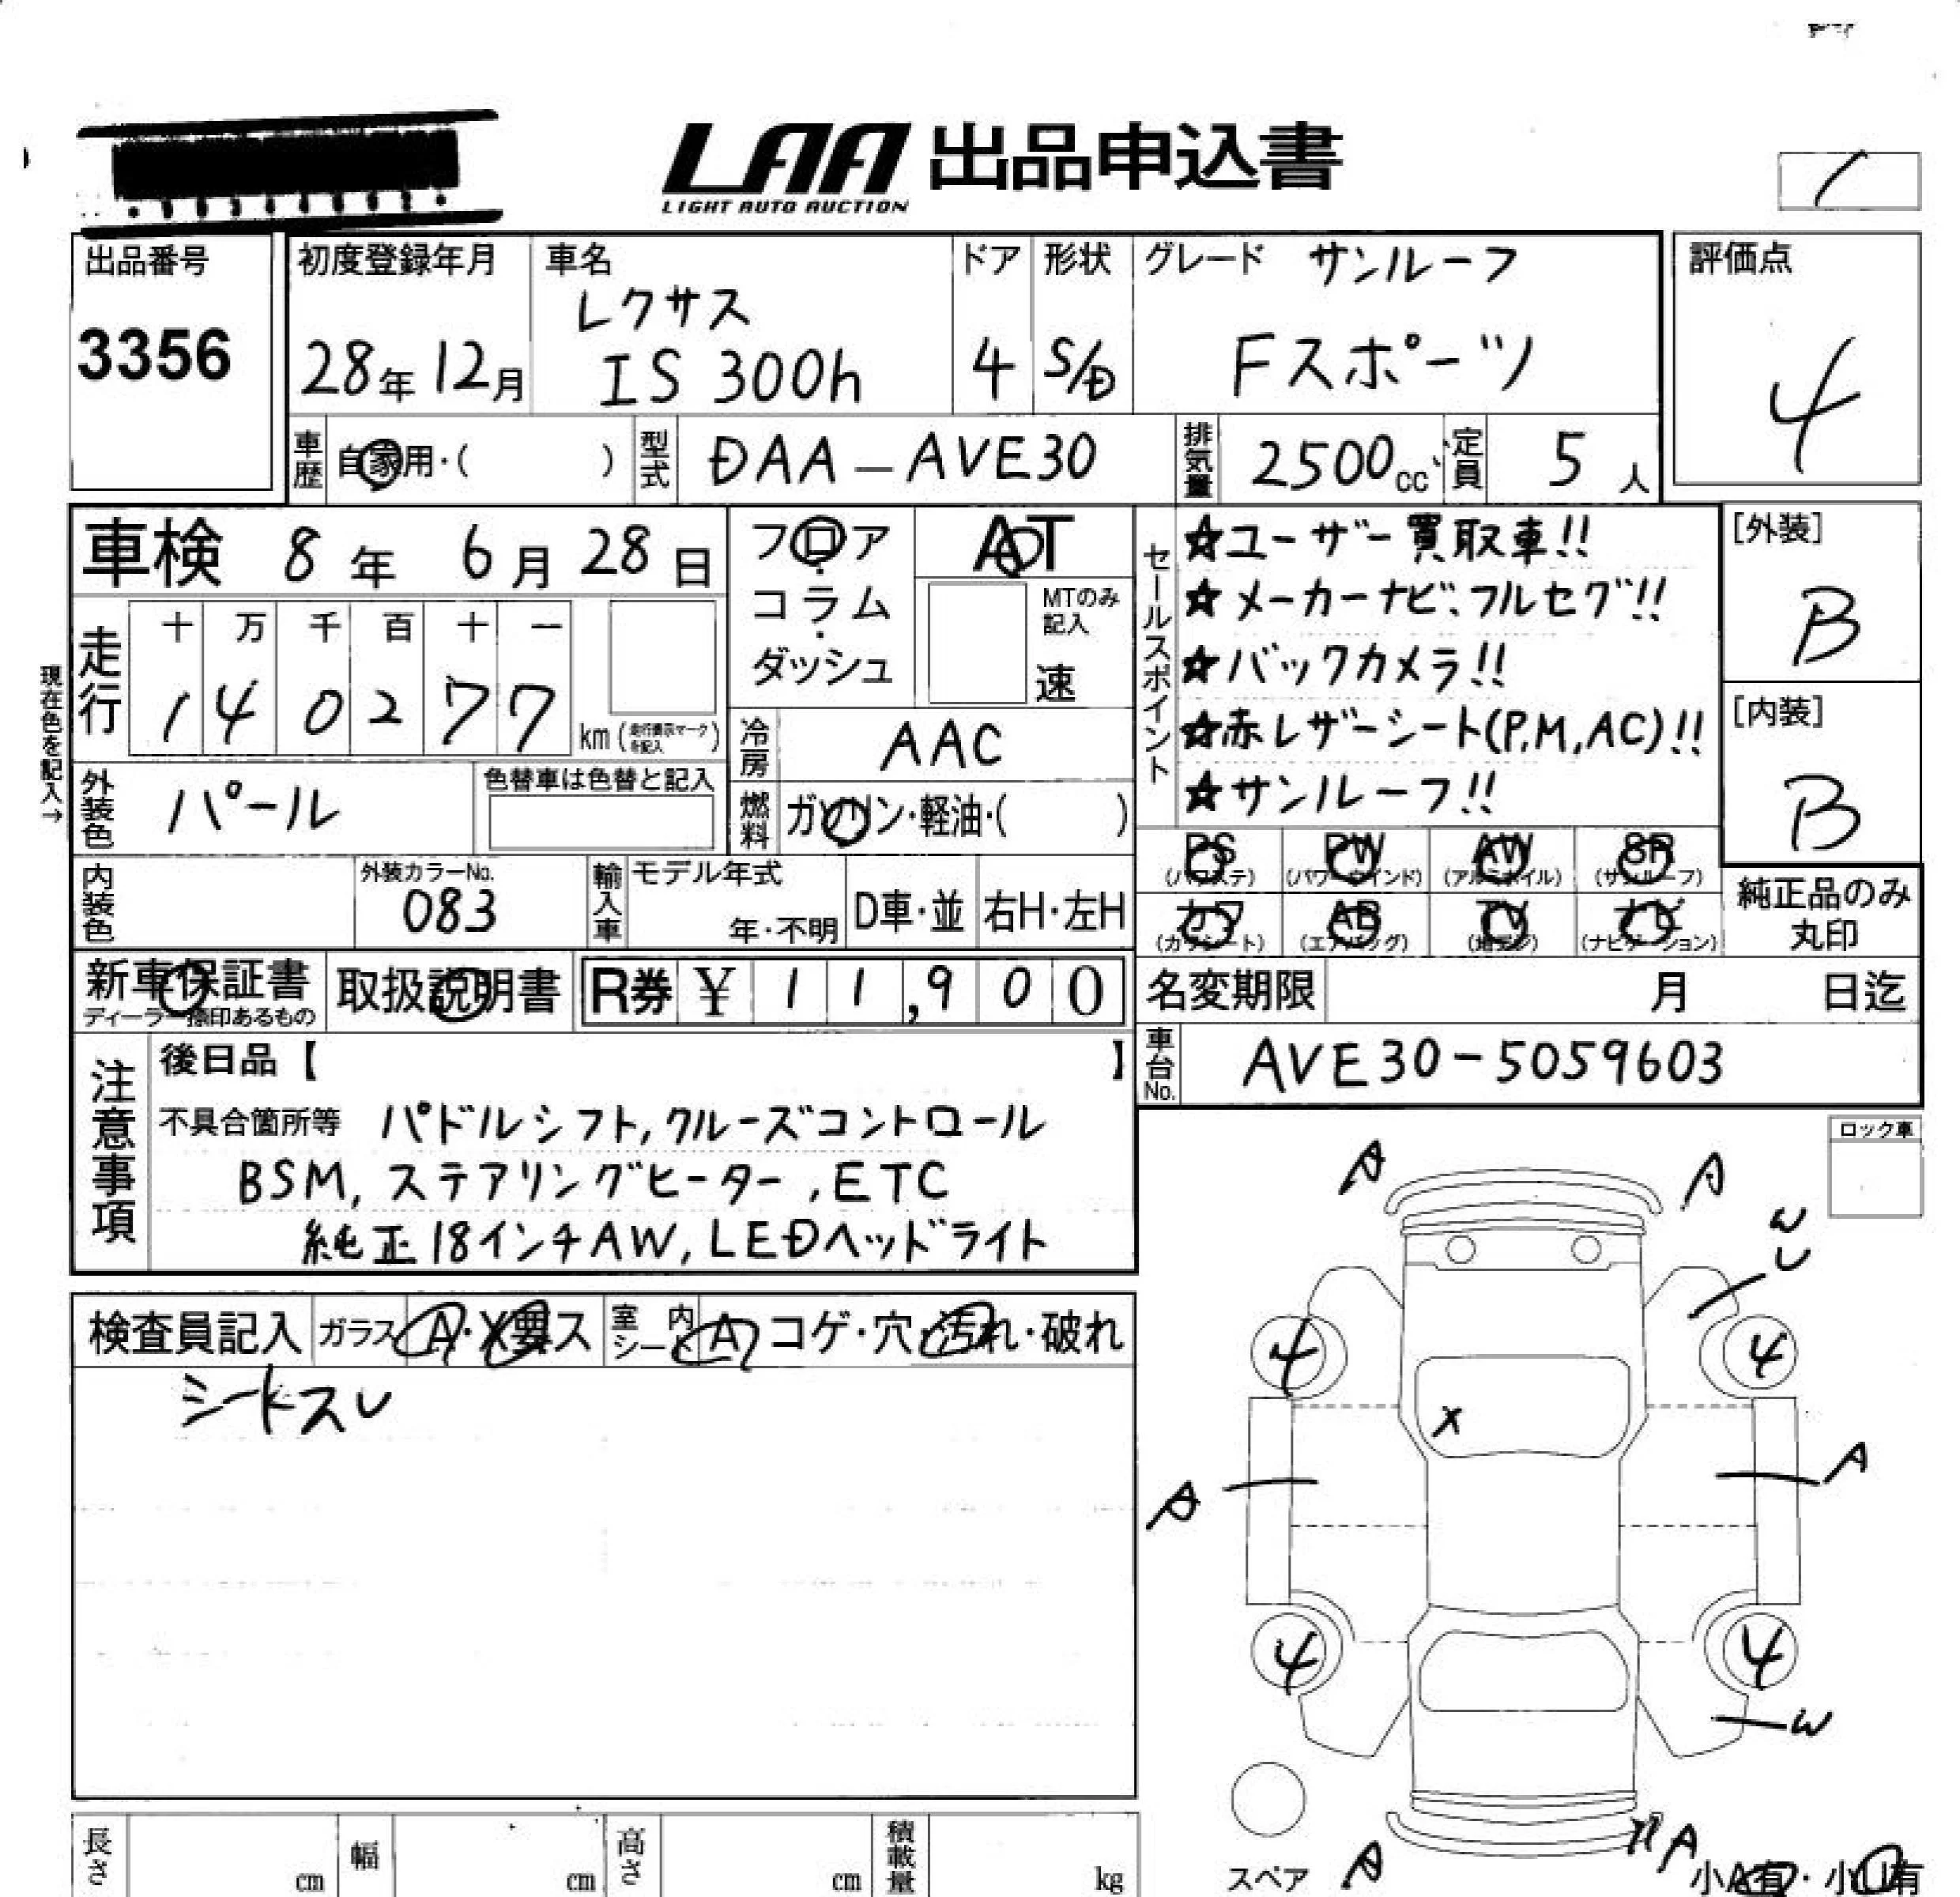 LAA 出品申込書
LIGHT AUTO AUCTION
出品番号
3356
初度登録年月
28年 12月
車名
レクサス
IS 300h
ドア
4
形状
S/D
グレード サンルーフ
Fスポーツ
評価点
4
車歴 自家用・( )
型式 DAA-AVE30
排気量 2500cc
定員 5人
車検 8年 6月 28日
現在色を記入→
走行 十 万 千 百 十 一
1 4 0 2 7 7 km
フロア
コラム
ダッシュ
AT
MTのみ
記入
速
冷房 AAC
燃料 ガソリン・軽油・( )
外装色 パール
色替車は色替と記入
内装色
外装カラーNo.
083
輸入車 モデル年式
年・不明
D車・並 右H・左H
セールスポイント
☆ユーザー買取車!!
☆メーカーナビ、フルセグ!!
☆バックカメラ!!
☆赤レザーシート(P,M,AC)!!
☆サンルーフ!!
[外装]
B
[内装]
B
PS PW AW SR
(パワステ) (パワーウインド) (アルミホイル) (サンルーフ)
カワ AB TV ナビ
(カワシート) (エアバッグ) (地デジ) (ナビゲーション)
純正品のみ
丸印
新車保証書
ディーラー捺印あるもの
取扱説明書
R券 ¥ 11,900
名変期限 月 日迄
車台No. AVE30-5059603
注意事項
後日品【 】
不具合箇所等 パドルシフト,クルーズコントロール
BSM,ステアリングヒーター,ETC
純正18インチAW,LEDヘッドライト
検査員記入 ガラス A・X要ス 室内シート A コゲ・穴・汚れ・破れ
シートスレ
ロック車
A
A
W
U
4
4
X
A
A
4
4
W
スペア
A
A
小A有・小U有
長さ cm
幅 cm
高さ cm
積載量 kg